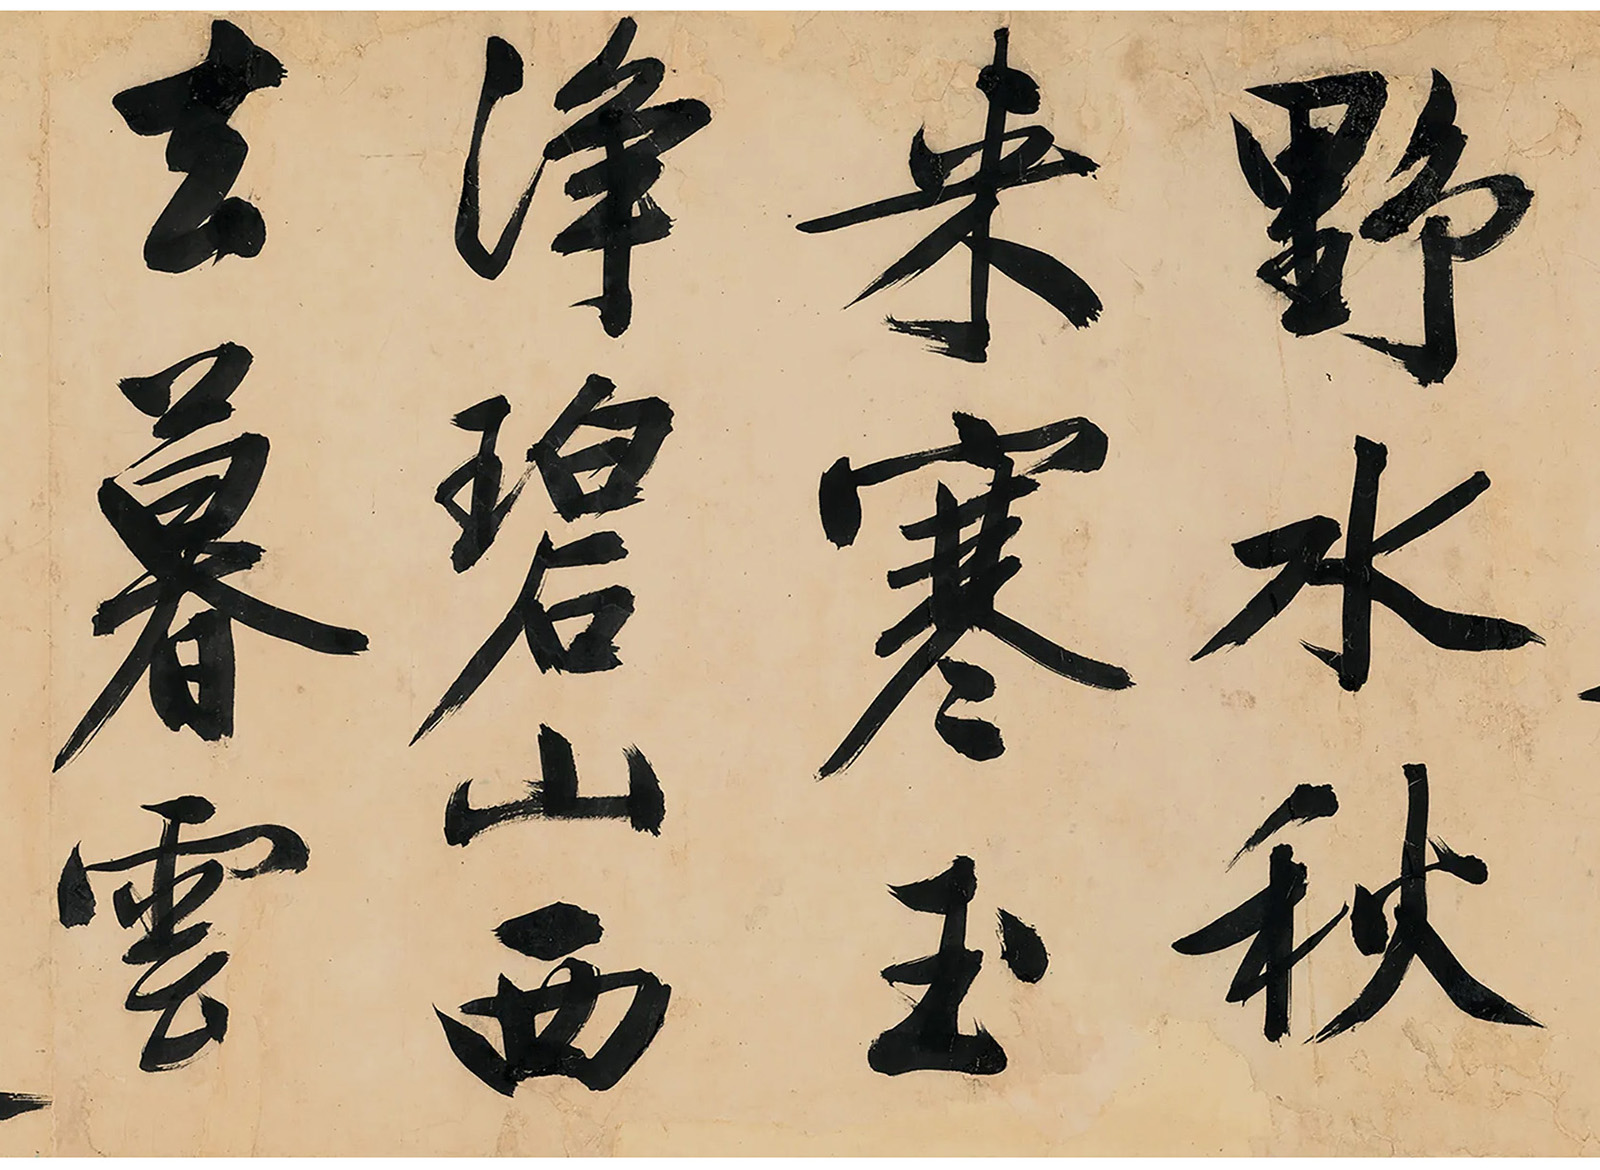 野水秋
来寒玉
淨碧山西
去暮雲